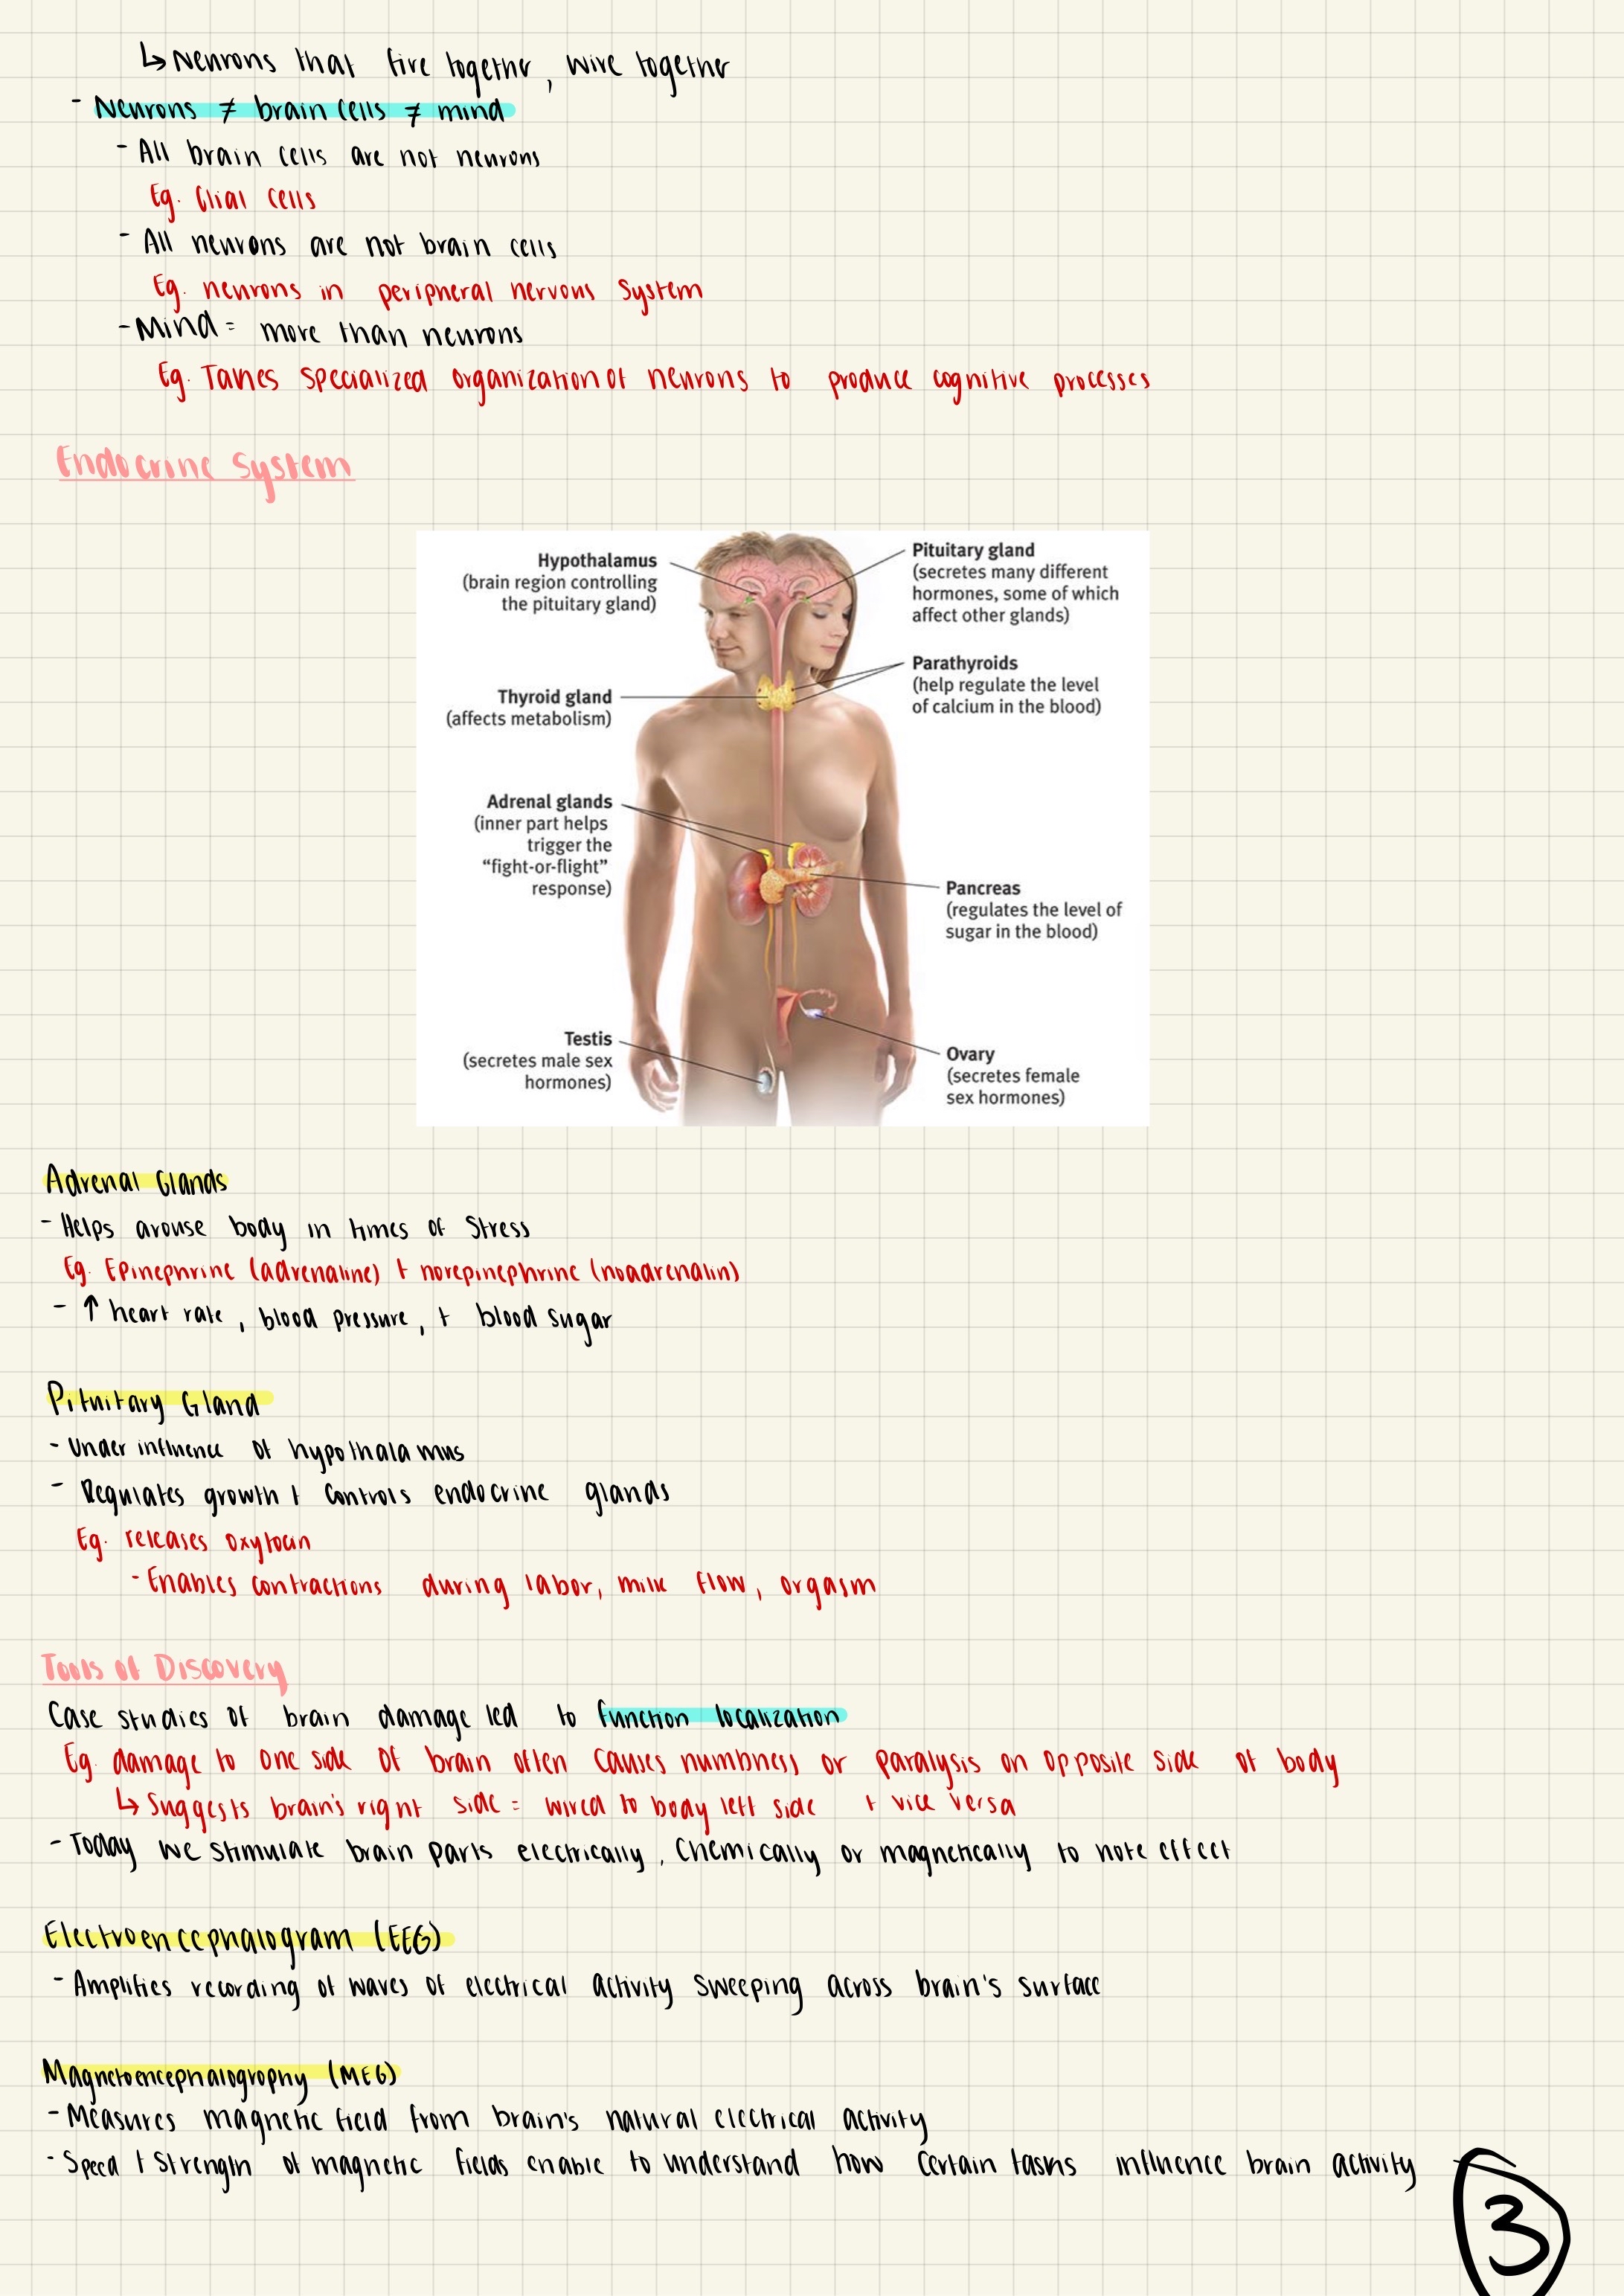 ↳ Neurons that fire together, wire together
- Neurons ≠ brain cells ≠ mind
- All brain cells are not neurons
Eg. Glial cells
- All neurons are not brain cells
Eg. neurons in peripheral nervous System
- Mind = more than neurons
Eg. Takes specialized organization of neurons to produce cognitive processes
Endocrine System
Hypothalamus
(brain region controlling
the pituitary gland)
Pituitary gland
(secretes many different
hormones, some of which
affect other glands)
Parathyroids
(help regulate the level
of calcium in the blood)
Thyroid gland
(affects metabolism)
Adrenal glands
(inner part helps
trigger the
“fight-or-flight”
response)
Pancreas
(regulates the level of
sugar in the blood)
Testis
(secretes male sex
hormones)
Ovary
(secretes female
sex hormones)
Adrenal Glands
- Helps arouse body in times of Stress
Eg. Epinephrine (adrenaline) + norepinephrine (noadrenalin)
- ↑ heart rate, blood pressure, + blood sugar
Pituitary Gland
- Under influence of hypothalamus
- Regulates growth + controls endocrine glands
Eg. releases oxytocin
- Enables contractions during labor, milk flow, orgasm
Tools of Discovery
Case studies of brain damage led to function localization
Eg. damage to one side of brain often causes numbness or paralysis on opposite side of body
↳ Suggests brain's right side = wired to body left side + vice versa
- Today we stimulate brain parts electrically, Chemically or magnetically to note effect
Electroencephalogram (EEG)
- Amplifies recording of waves of electrical activity sweeping across brain's surface
Magnetoencephalogrophy (MEG)
- Measures magnetic field from brain's natural electrical activity
- Speed + Strength of magnetic fields enable to understand how certain tasks influence brain activity
3